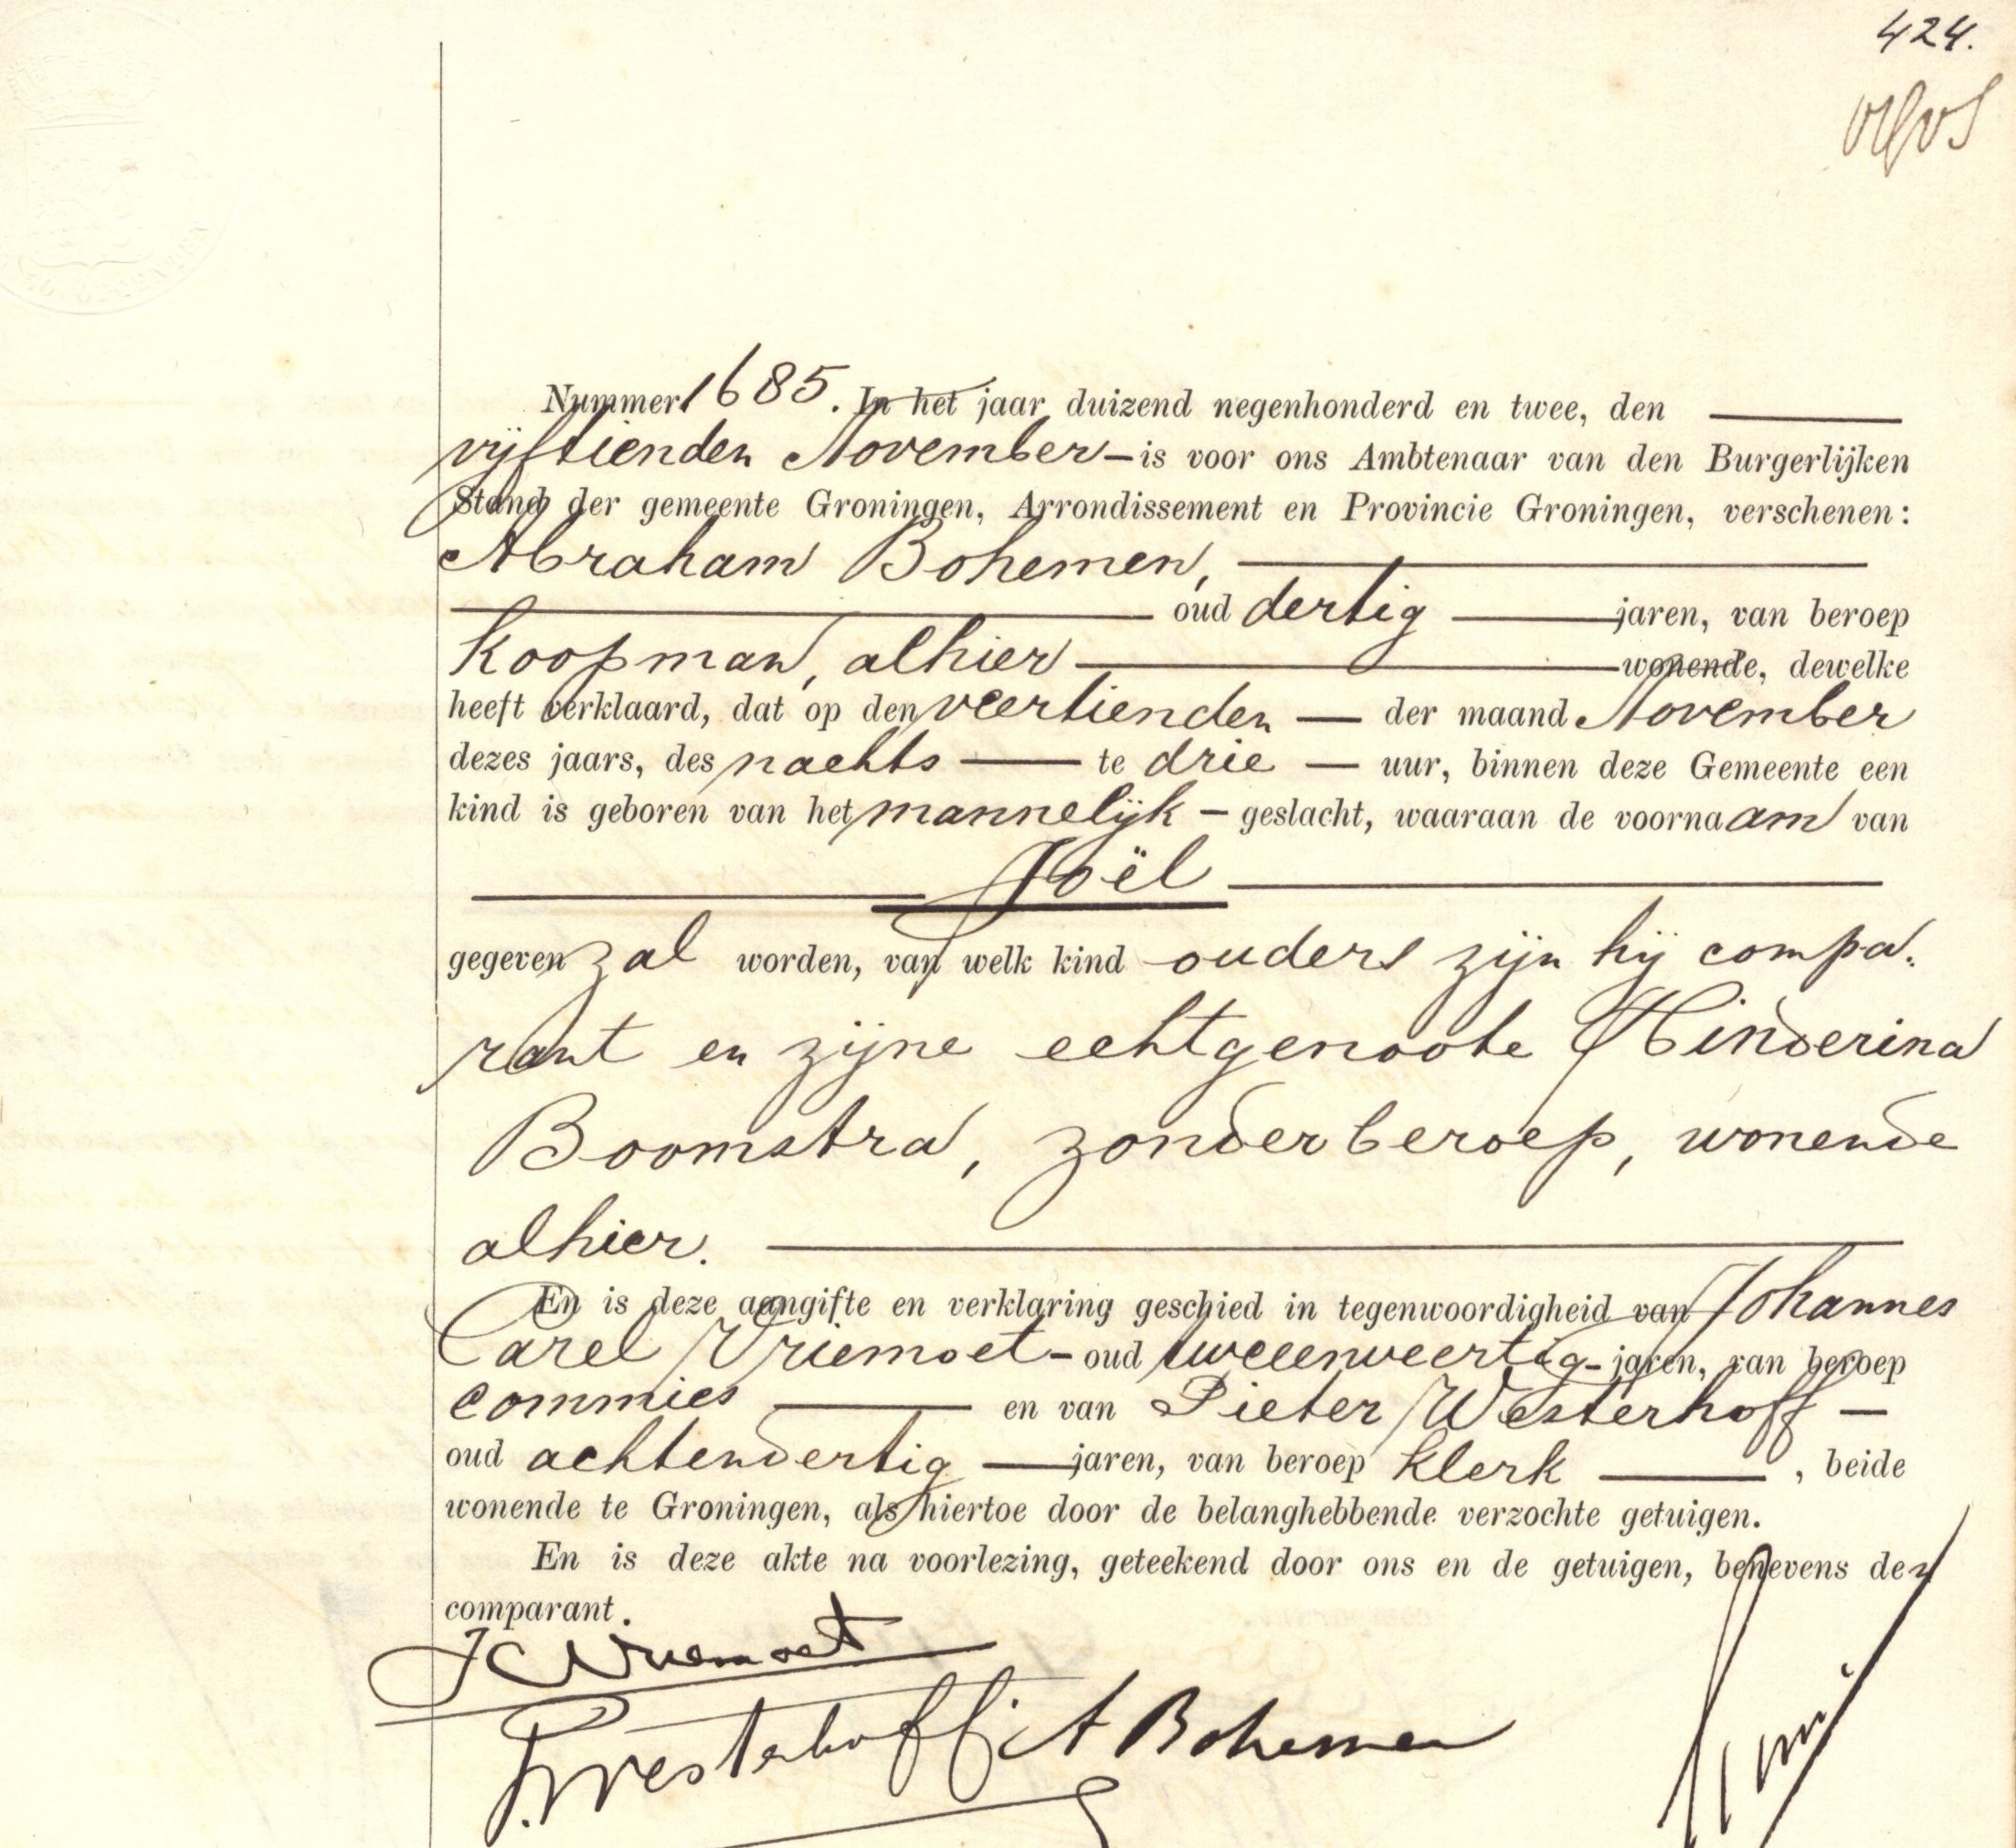 424.
Nummer 1685. In het jaar duizend negenhonderd en twee, den
vijftienden November is voor ons Ambtenaar van den Burgerlijken
Stand der gemeente Groningen, Arrondissement en Provincie Groningen, verschenen:
Abraham Bohemen,
oud dertig jaren, van beroep
koopman, alhier wonende, dewelke
heeft verklaard, dat op den veertienden der maand November
dezes jaars, des nachts te drie uur, binnen deze Gemeente een
kind is geboren van het mannelijk geslacht, waaraan de voornaam van
Joël
gegeven zal worden, van welk kind ouders zijn hij compa-
rant en zijne echtgenoote Hinderina
Boomstra, zonder beroep, wonende
alhier.
En is deze aangifte en verklaring geschied in tegenwoordigheid van Johannes
Carel Vriemoet oud tweeenveertig jaren, van beroep
commies en van Pieter Westerhoff
oud achtendertig jaren, van beroep klerk, beide
wonende te Groningen, als hiertoe door de belanghebbende verzochte getuigen.
En is deze akte na voorlezing, geteekend door ons en de getuigen, benevens den
comparant.
JC Vriemoet
P. Westerhoff A Bohemen